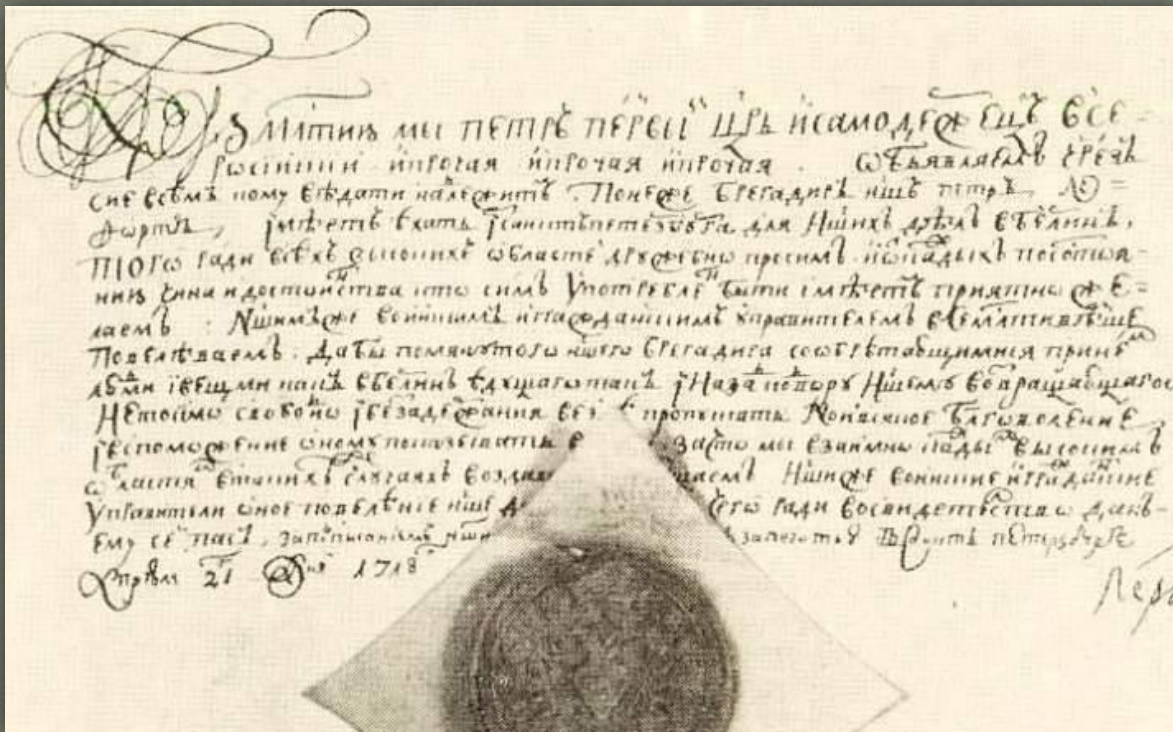 Б҃ЖИЕЮ МЛ҃ТИЮ МЫ ПЕТРЪ ПЕРВЫЙ ЦР҃Ь И САМОДЕРЖЕЦЪ ВСЕ-
РОСИЙСКИЙ И ПРОЧАЯ И ПРОЧАЯ И ПРОЧАЯ. ѡбъявляемъ чрезъ
сие всѣмъ кому вѣдати належитъ. Понеже брегадиръ нш҃ъ петръ ле=
фортъ, имѣетъ ехать исанктъпетерзбурга для нш҃ихъ дѣлъ вберлинъ,
того ради всѣхъ высокихъ ѡбластей дружебно просимъ. и комуждыхъ посостоя-
нию чина и достоинства кто симъ употребленъ быти имѣетъ приятно же=
лаемъ: Нш҃имъже воинскимъ и гражданскимъ управителемъ всемл҃тивѣйше
повелѣваемъ. Дабы помянутого нш҃его брегадира сообрѣтающимися принемъ
людми ивещми какъ вберлинъ едущаго такъ и назадъ ко двору нш҃ему возвращающагося
Нетокмо свободно ибеззадержания везде пропускать. Но ивсякое благоволение,
ивспоможение ономупоказывать зачто мы взаимно каждымъ высокимъ
ѡбластямъ втакихъ случаяхъ воздавать Нш҃иже воинские игражданские
Управители оное повелѣние нш҃е Чего ради восвидетелство данъ-
ему сей пасъ, заподписаниемъ печатью въ Санктъ петерзбурге
Апрѣля 21 дня 1718